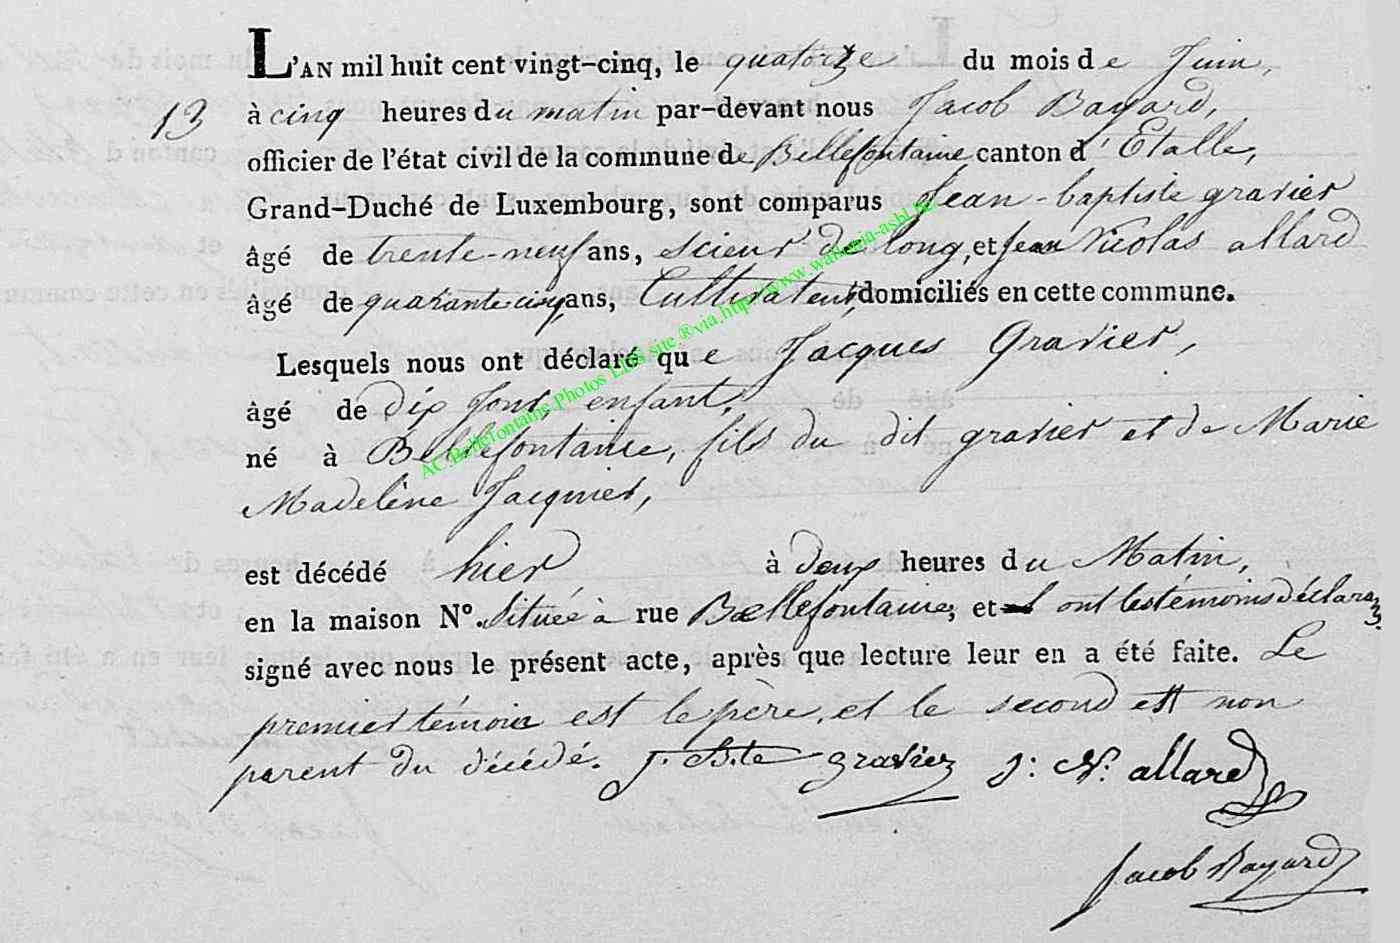 L'AN mil huit cent vingt-cinq, le quatorze du mois de Juin,
13 à cinq heures du matin par-devant nous Jacob Bayard,
officier de l'état civil de la commune de Bellefontaine canton d'Etalle,
Grand-Duché de Luxembourg, sont comparus Jean-baptiste gravier
âgé de trente-neuf ans, scieur de long, et Jean Nicolas allard
âgé de quarante cinq ans, Cultivateur, domiciliés en cette commune.
Lesquels nous ont déclaré que Jacques Gravier,
âgé de dix jours, enfant,
né à Bellefontaine, fils du dit gravier et de Marie
Madelène Jacquier,
est décédé hier à deux heures du Matin,
en la maison N°. située à rue Bellefontaine, et ont les témoins déclarans
signé avec nous le présent acte, après que lecture leur en a été faite. Le
premier témoin est le père, et le second est non
parent du décédé. J. Bte gravier J: N. allard
Jacob Bayard
AC.Bellefontaine-Photos LDS site ® via.http://www.wallonia-asbl.be